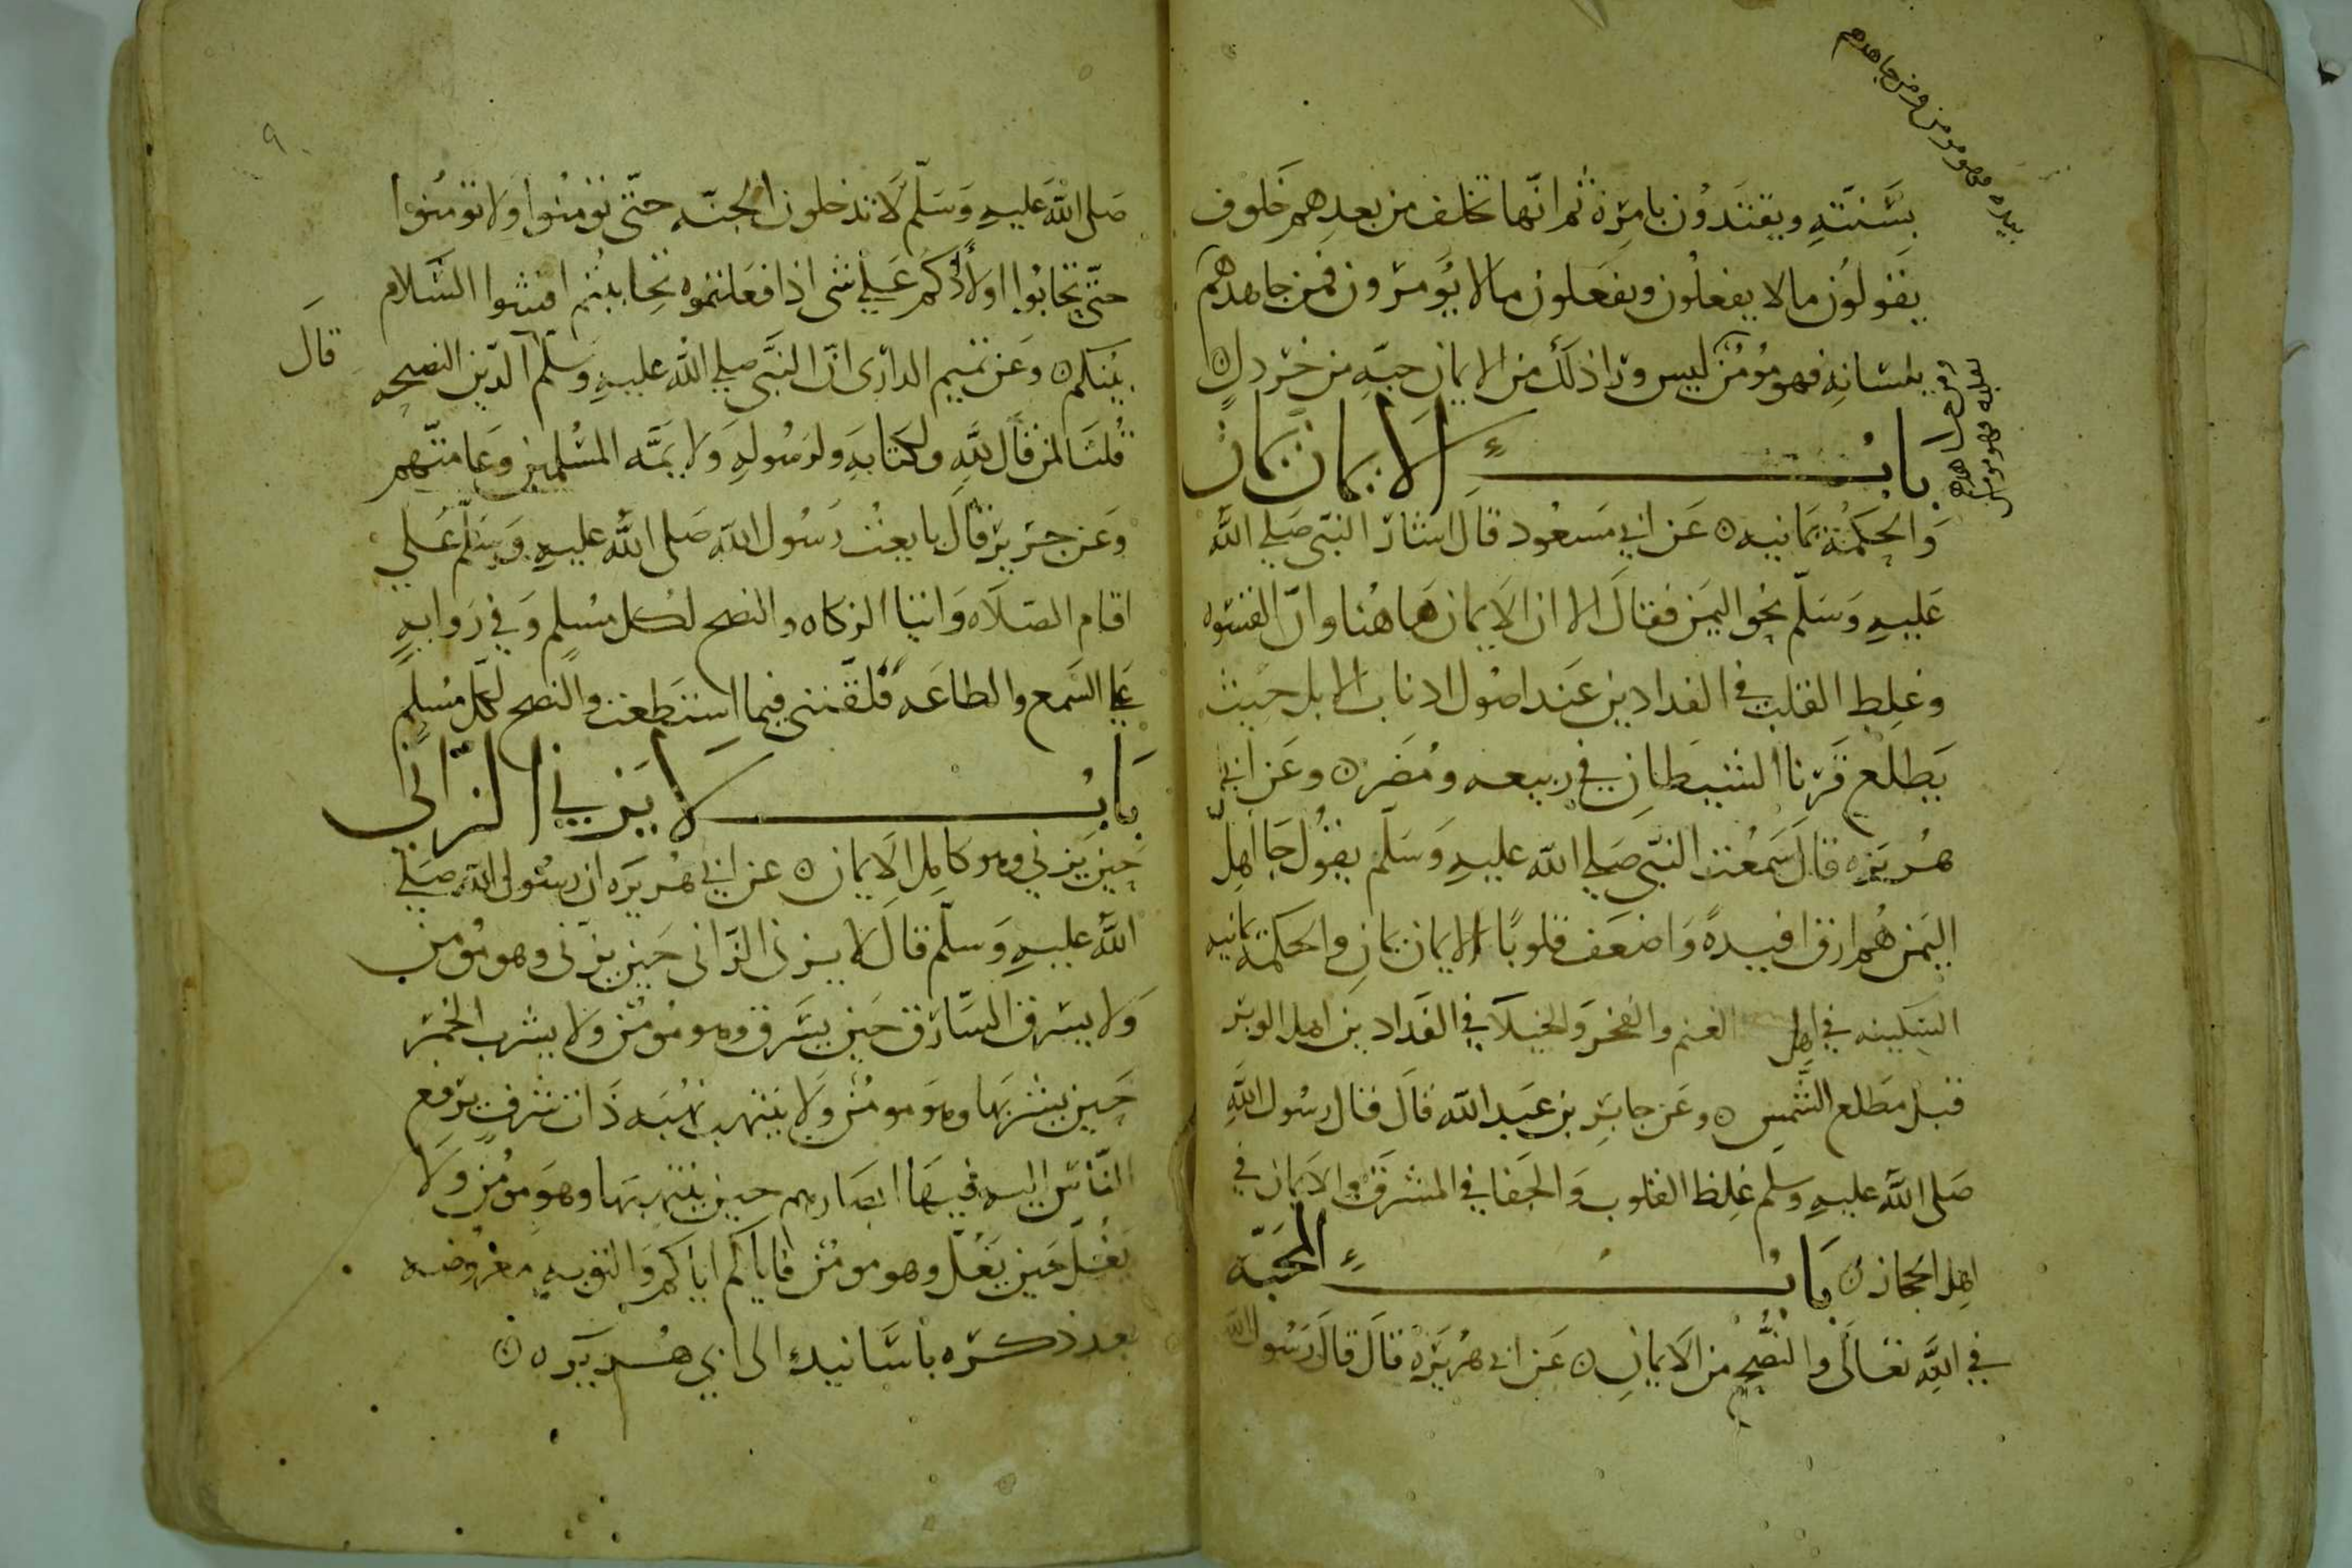 بسنته ويقتدون بامره ثم انها تخلف من بعدهم خلوف
يقولون مالا يفعلون ويفعلون مالا يؤمرون فمن جاهدهم
بيده فهو مومن ومن جاهدهم
بلسانه فهو مؤمن ليس ورا ذلك من الايمان حبه من خردل
ومن جاهدهم
بقلبه فهو مومن
باب في الايمان يمان
والحكمة يمانيه عن ابي مسعود قال اشار النبي صلي الله
عليه وسلم نحو اليمن فقال الا ان الايمان هاهنا وان القسوه
وغلظ القلب في الفدادين عند اصول اذناب الابل حيث
يطلع قرنا الشيطان في ربيعه ومضر وعن ابي
هريره قال سمعت النبي صلي الله عليه وسلم يقول جا اهل
اليمن هم ارق افيدة واضعف قلوبا الايمان يمان والحكمة يمانيه
السكينه في اهل الغنم والفخر والخيلا في الفدادين اهل الوبر
قبل مطلع الشمس وعن جابر بن عبد الله قال قال رسول الله
صلى الله عليه وسلم غلظ القلوب والجفا في المشرق والايمان في
اهل الحجاز باب في المحبه
في الله تعالى والنصح من الايمان عن ابي هريرة قال قال رسول الله
٩
صلى الله عليه وسلم لا تدخلون الجنه حتى تومنوا ولا تومنوا
حتى تحابوا اولا أدلكم على شى اذا فعلتموه تحاببتم افشوا السلام
بينكم وعن تميم الدارى ان النبي صلي الله عليه وسلم قال الدين النصيحه
قلنا لمن قال لله ولكتابه ولرسوله ولايمه المسلمين وعامتهم
وعن جرير قال بايعت رسول الله صلى الله عليه وسلم علي
اقام الصلاه وايتا الزكاه والنصح لكل مسلم وفي روايه
على السمع والطاعه فلقنني فيما استطعت والنصح لكل مسلم
باب لا يزني الزاني
حين يزني وهو كامل الايمان عن ابي هريره ان رسول الله صلي
الله عليه وسلم قال لا يزنى الزانى حين يزنى وهو مؤمن
ولا يسرق السارق حين يسرق وهو مؤمن ولا يشرب الخمر
حين يشربها وهو مومن ولا ينتهب نهبه ذات شرف يرفع
الناس اليه فيها ابصارهم حين ينتهبها وهو مومن ولا
يغل حين يغل وهو مومن فاياكم اياكم والتوبه معروضه
بعد ذكره باسانيد الى ابي هريره